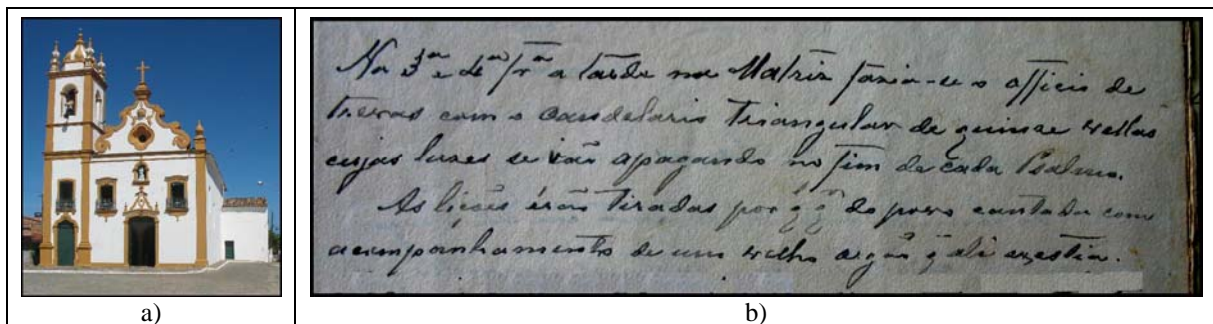 Na 3ª e 4ª frª a tarde na Matriz fazia-se o officio de
trevas com o candelario triangular de quinze vellas
cujas luzes se vão apagando no fim de cada Psalmo.
As lições érão tiradas por do povo cantada com
acompanhamento de um velho orgão q̃ ali exestia.
a) b)